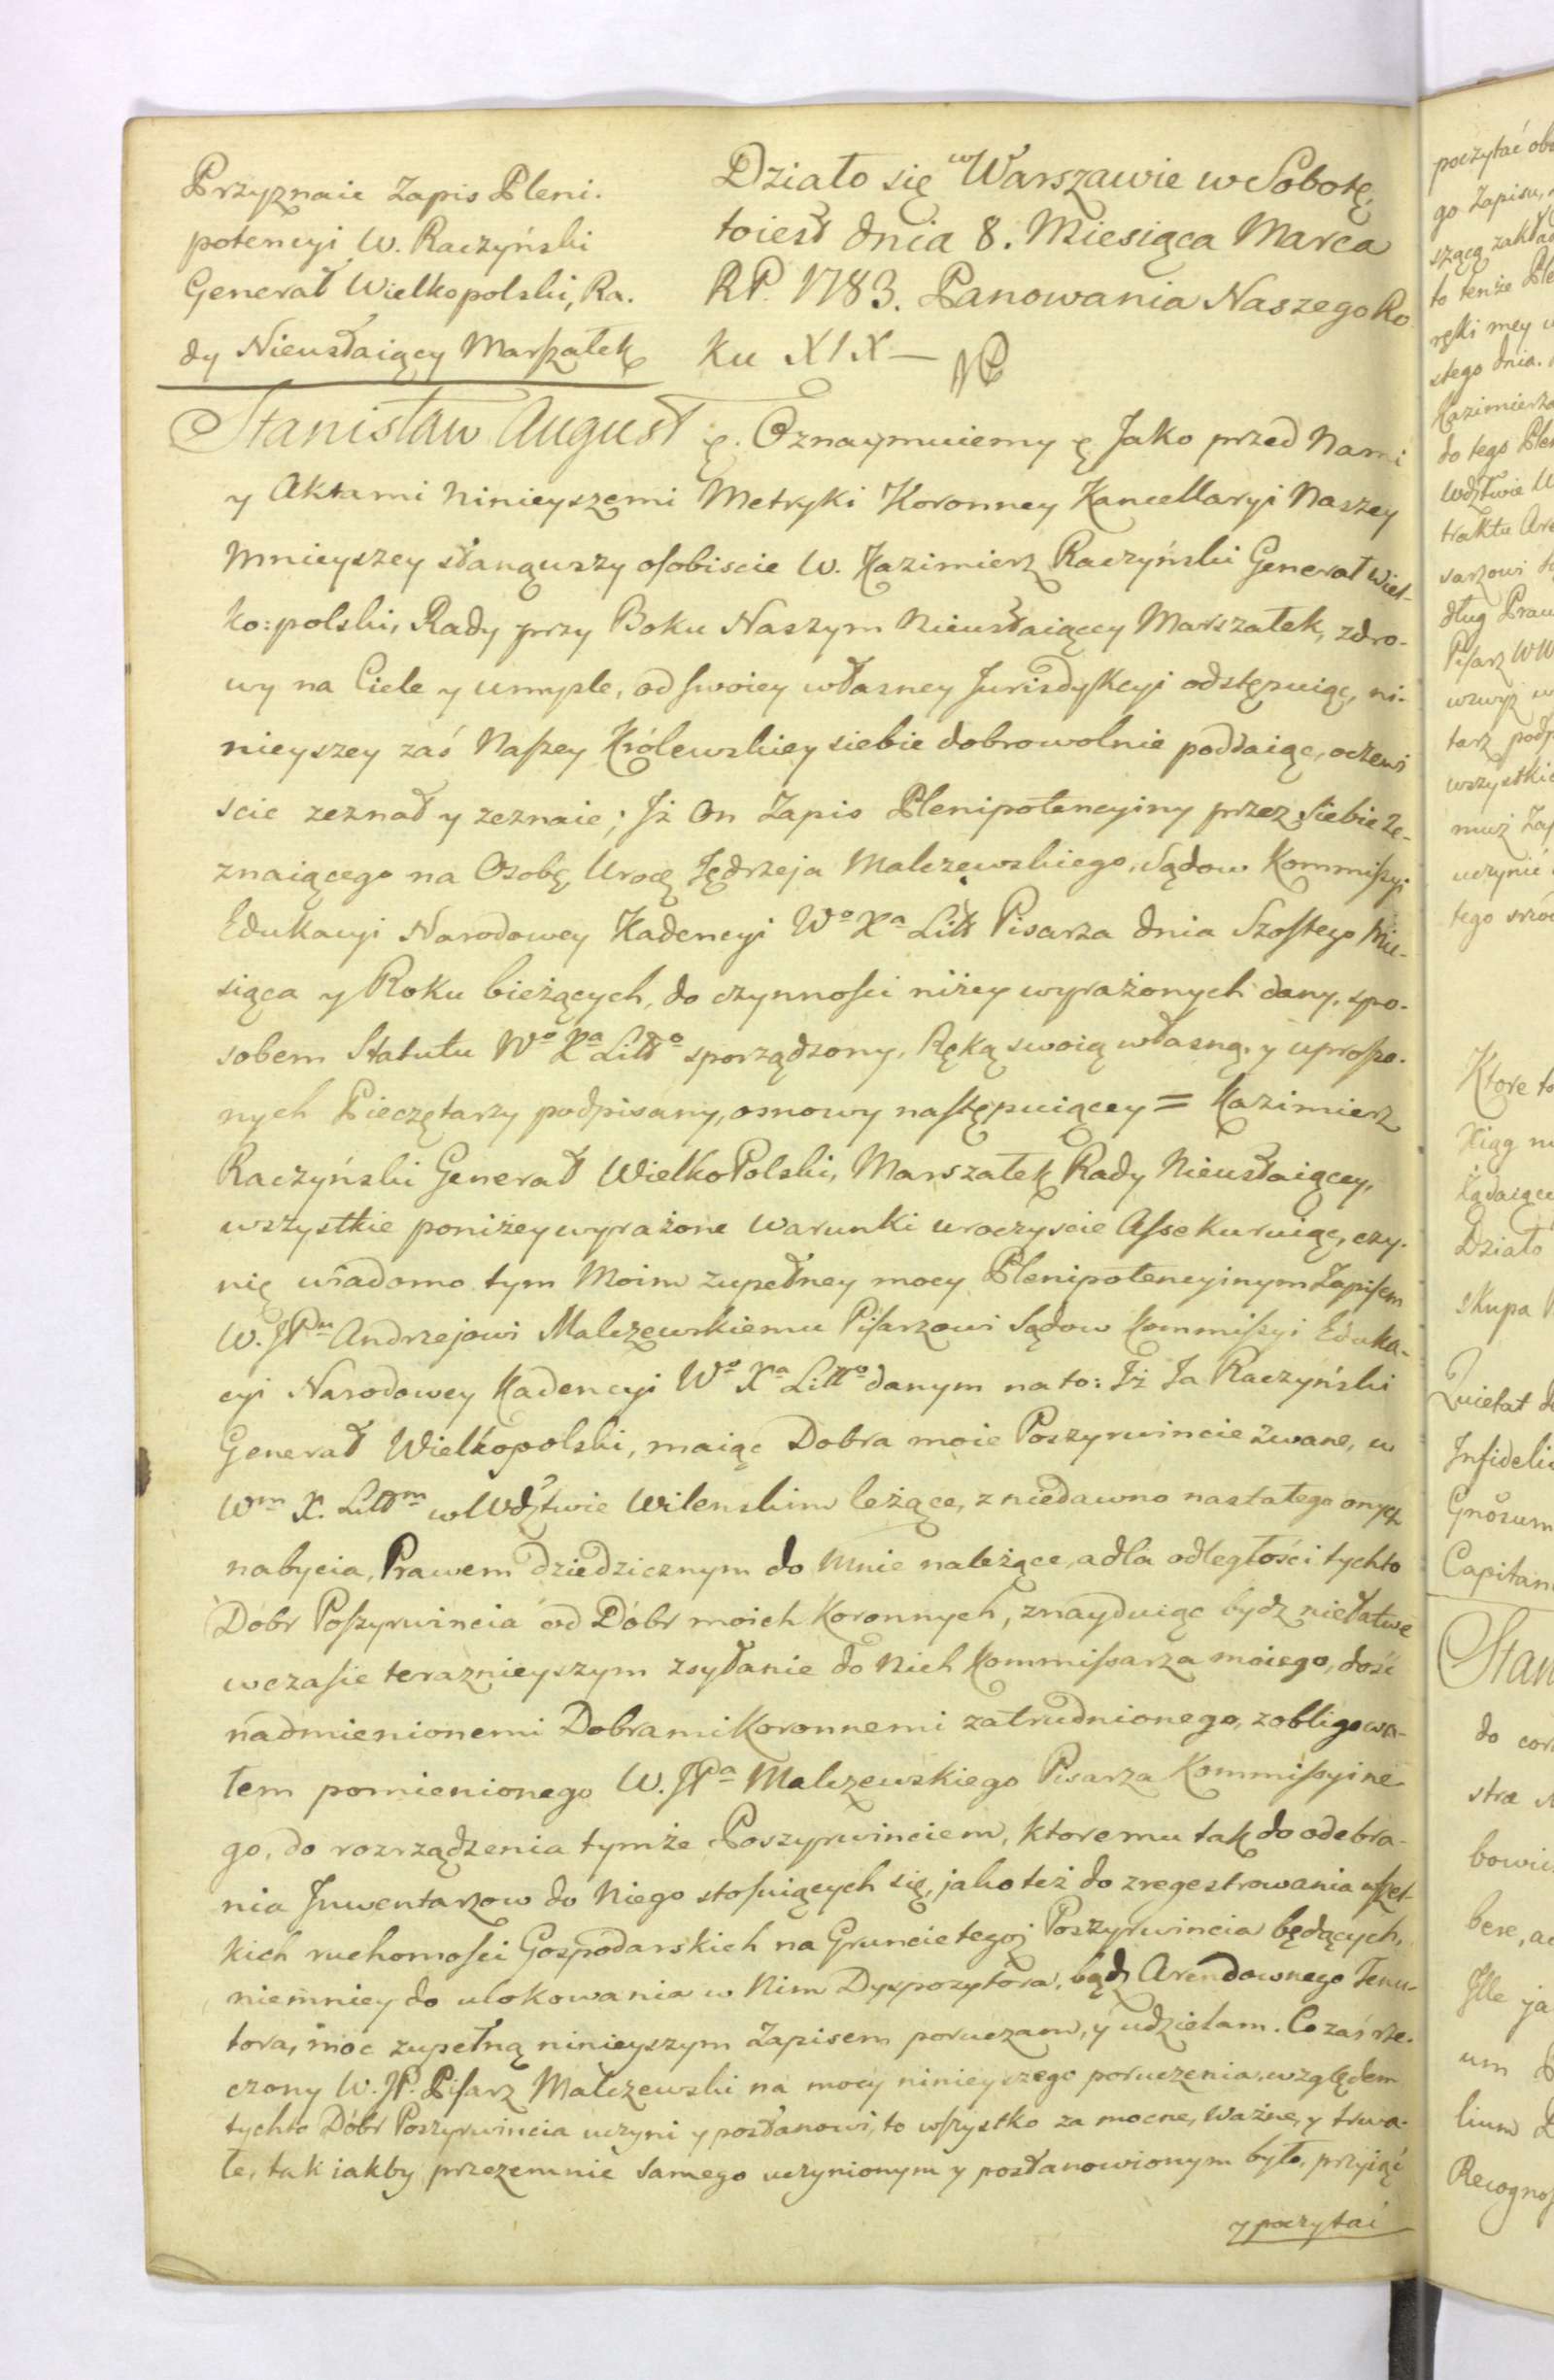 Przyznaie Zapis Pleni.
potencyi W. Raczyński
Generał Wielkopolski, Ra.
dy Nieustaiącey Marszałek
Działo się w Warszawie w Sobotę,
toiest dnia 8. Miesiąca Marca
RP. 1783. Panowania Naszego Ro
ku XIX —
Stanisław August Oznaymuiemy Jako przed Nami
y Aktami Ninieyszemi Metryki Koronney Kancellaryi Naszey
Mnieyszey stanąwszy osobiscie W. Kazimierz Raczyński Generał Wiel-
ko: polski, Rady przy Boku Naszym Nieustaiącey Marszałek, zdro-
wy na Ciele y umysle, od swoiey własney Jurisdykcyi odstępuiąc, ni-
nieyszey zaś Naszey Królewskiey siebie dobrowolnie poddaiąc, oczewi
scie zeznał y zeznaie; Iż On Zapis Plenipotencyiny przez siebie Ze-
znaiącego na Osobę Uroę Jędrzeja Malczewskiego, Sądow Kommissyi
Edukacyi Narodowey Kadencyi Wo Xa Litt Pisarza dnia Szostego Mie-
siąca y Roku bieżących, do czynnosci niżey wyrażonych dany, spo-
sobem Statutu Wo Xa Litto sporządzony, Ręką swoią własną, y uproszo-
nych Pieczętarzy podpisany, osnowy następuiącey = Kazimierz
Raczyński Generał WielkoPolski, Marszałek Rady Nieustaiącey,
wszystkie poniżey wyrażone Warunki uroczyscie Assekuruiąc, czy-
nię wiadomo tym Moim zupełney mocy Plenipotencyinym Zapisem
W. JPu Andrzejowi Malczewskiemu Pisarzowi Sądow Kommissyi Eduka-
cyi Narodowey Kadencyi Wo Xa Litto danym na to: Iż Ja Raczyński
Generał Wielkopolski, maiąc Dobra moie Poszyrwincie zwane, w
Wm X. Littm w Wdztwie Wilenskim leżące, z niedawno nastałego onych
nabycia, Prawem dziedzicznym do Mnie należące, a dla odległości tychto
Dóbr Poszyrwincia od Dóbr moich Koronnych, znayduiąc bydz niełatwe
w czasie teraznieyszym zsyłanie do Nich Kommissarza moiego, dość
nadmienionemi Dobrami Koronnemi zatrudnionego, zobligowa-
łem pomienionego W. JPa Malczewskiego Pisarza Kommissyine
go, do rozrządzenia tymże Poszyrwinciem, ktoremu tak do odebra-
nia Inwentarzow do Niego stosuiących się, jako też do zregestrowania wszel-
kich ruchomosci Gospodarskich na Gruncie tegoż Poszyrwincia będących,
niemniey do ulokowania w Nim Dyspozytora, bądz Arendownego Tenu-
tora, moc zupełną ninieyszym Zapisem poruczam, y udzielam. Co zaś rze-
czony W. JP. Pisarz Malczewski na mocy ninieyszego poruczenia, względem
tychto Dóbr Poszyrwincia uczyni y postanowi, to wszystko za mocne, Ważne, y trwa-
łe, tak iakby przezemnie samego uczynionym y postanowionym było, przyiąć
y poczytać
poczytać
go Zapisu,
szącą
to tenże
ręki mey
stego dnia.
Kazimierz
do tego
Wdztwie
traktu
sarzowi
dług
Pisarz WW
wszystkie
muż
uczynić
tego
Ktore
Xiąg
Działo
skupa
Quietat
Infideli
Capitan
Stan
do
stra
bere,
Ille
um
lium
Recognos